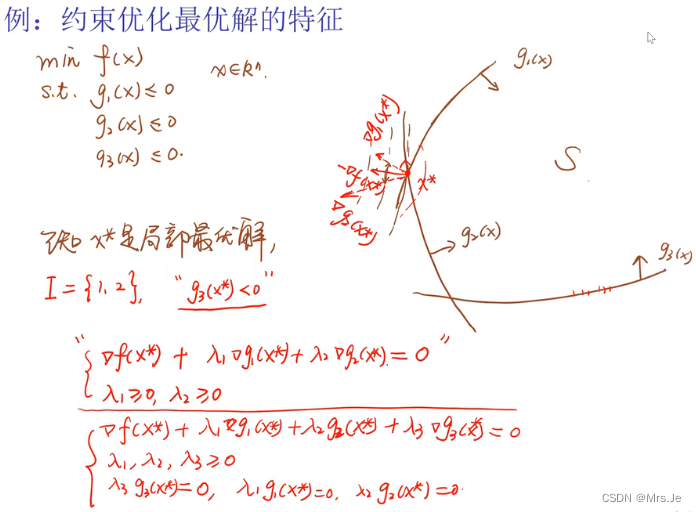 例：约束优化最优解的特征
min f(x)
s.t. g₁(x) ≤ 0
x∈Rⁿ.
g₂(x) ≤ 0
g₃(x) ≤ 0.
g₁(x)
S
∇g₁(x*)
-∇f(x*)
x*
g₂(x)
g₃(x)
x*是局部最优解,
I = {1, 2}, "g₃(x*) < 0"
"{ ∇f(x*) + λ₁∇g₁(x*) + λ₂∇g₂(x*) = 0"
λ₁ ≥ 0, λ₂ ≥ 0
{ ∇f(x*) + λ₁∇g₁(x*) + λ₂g₂(x*) + λ₃∇g₃(x*) = 0
λ₁, λ₂, λ₃ ≥ 0
λ₃g₃(x*) = 0, λ₁g₁(x*) = 0, λ₂g₂(x*) = 0.
CSDN @Mrs.Je